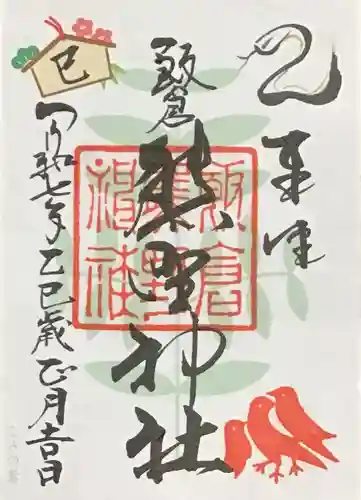 奉拝
飯倉
熊野神社
令和七年乙巳歳正月吉日
巳
飯倉
熊野
神社